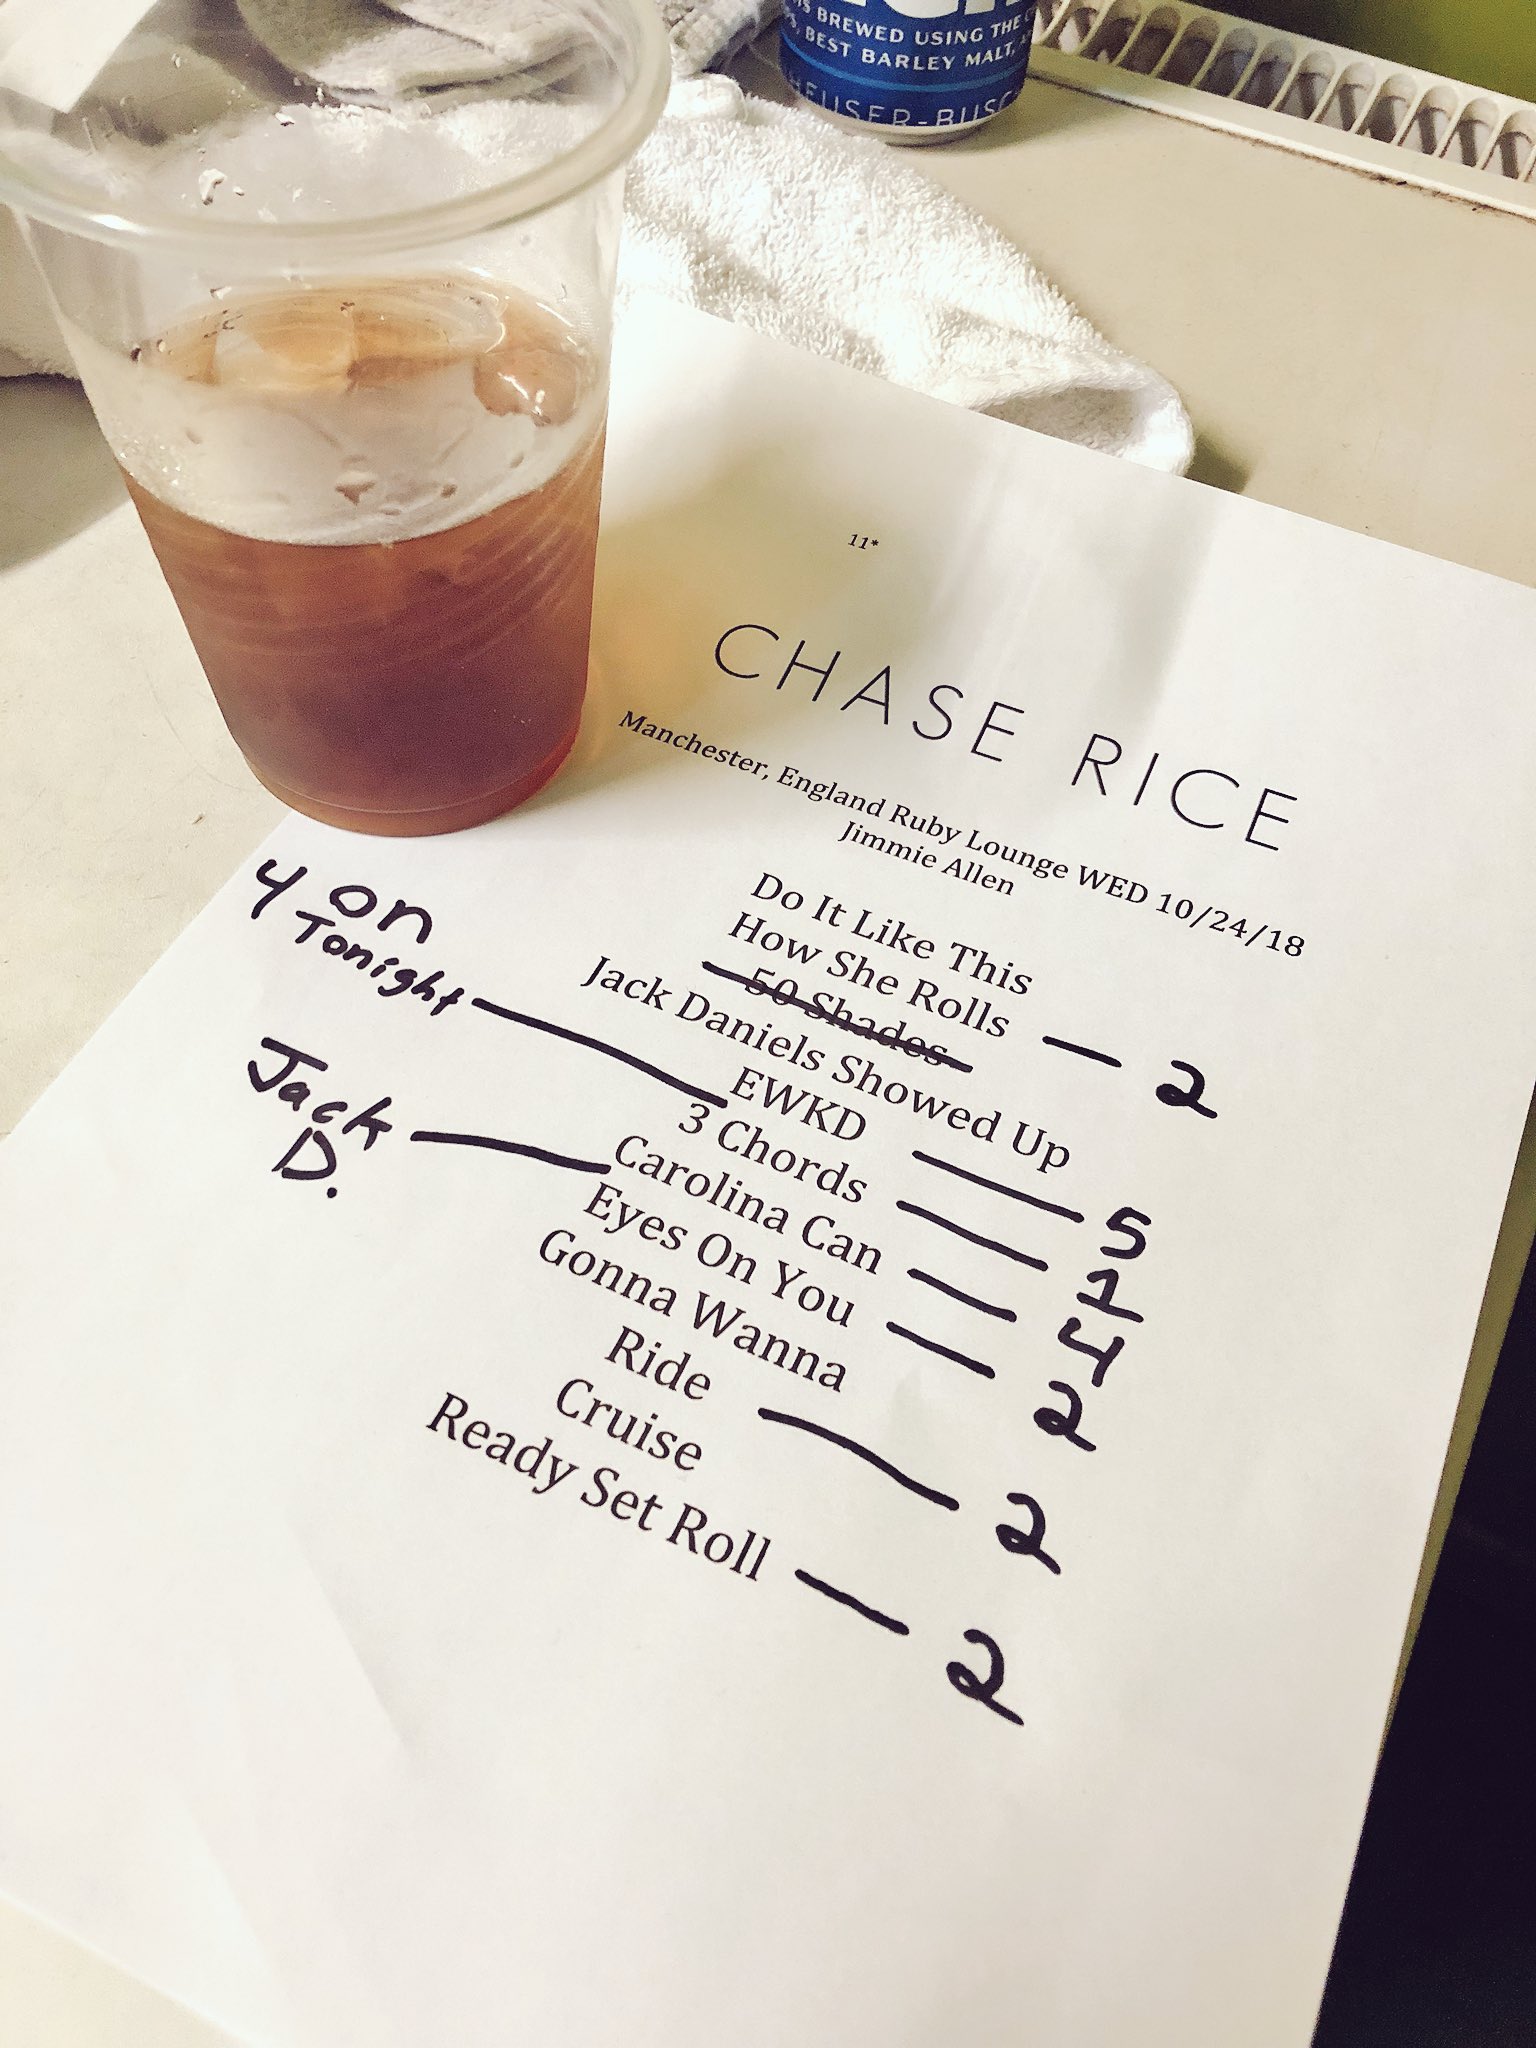 S BREWED USING THE C
S, BEST BARLEY MALT,
HEUSER-BUSC
11*
CHASE RICE
Manchester, England Ruby Lounge WED 10/24/18
Jimmie Allen
Do It Like This
How She Rolls — 2
50 Shades
Jack Daniels Showed Up
4 on Tonight — EWKD — 5
3 Chords — 1
Jack D. — Carolina Can — 4
Eyes On You — 2
Gonna Wanna
Ride — 2
Cruise
Ready Set Roll — 2